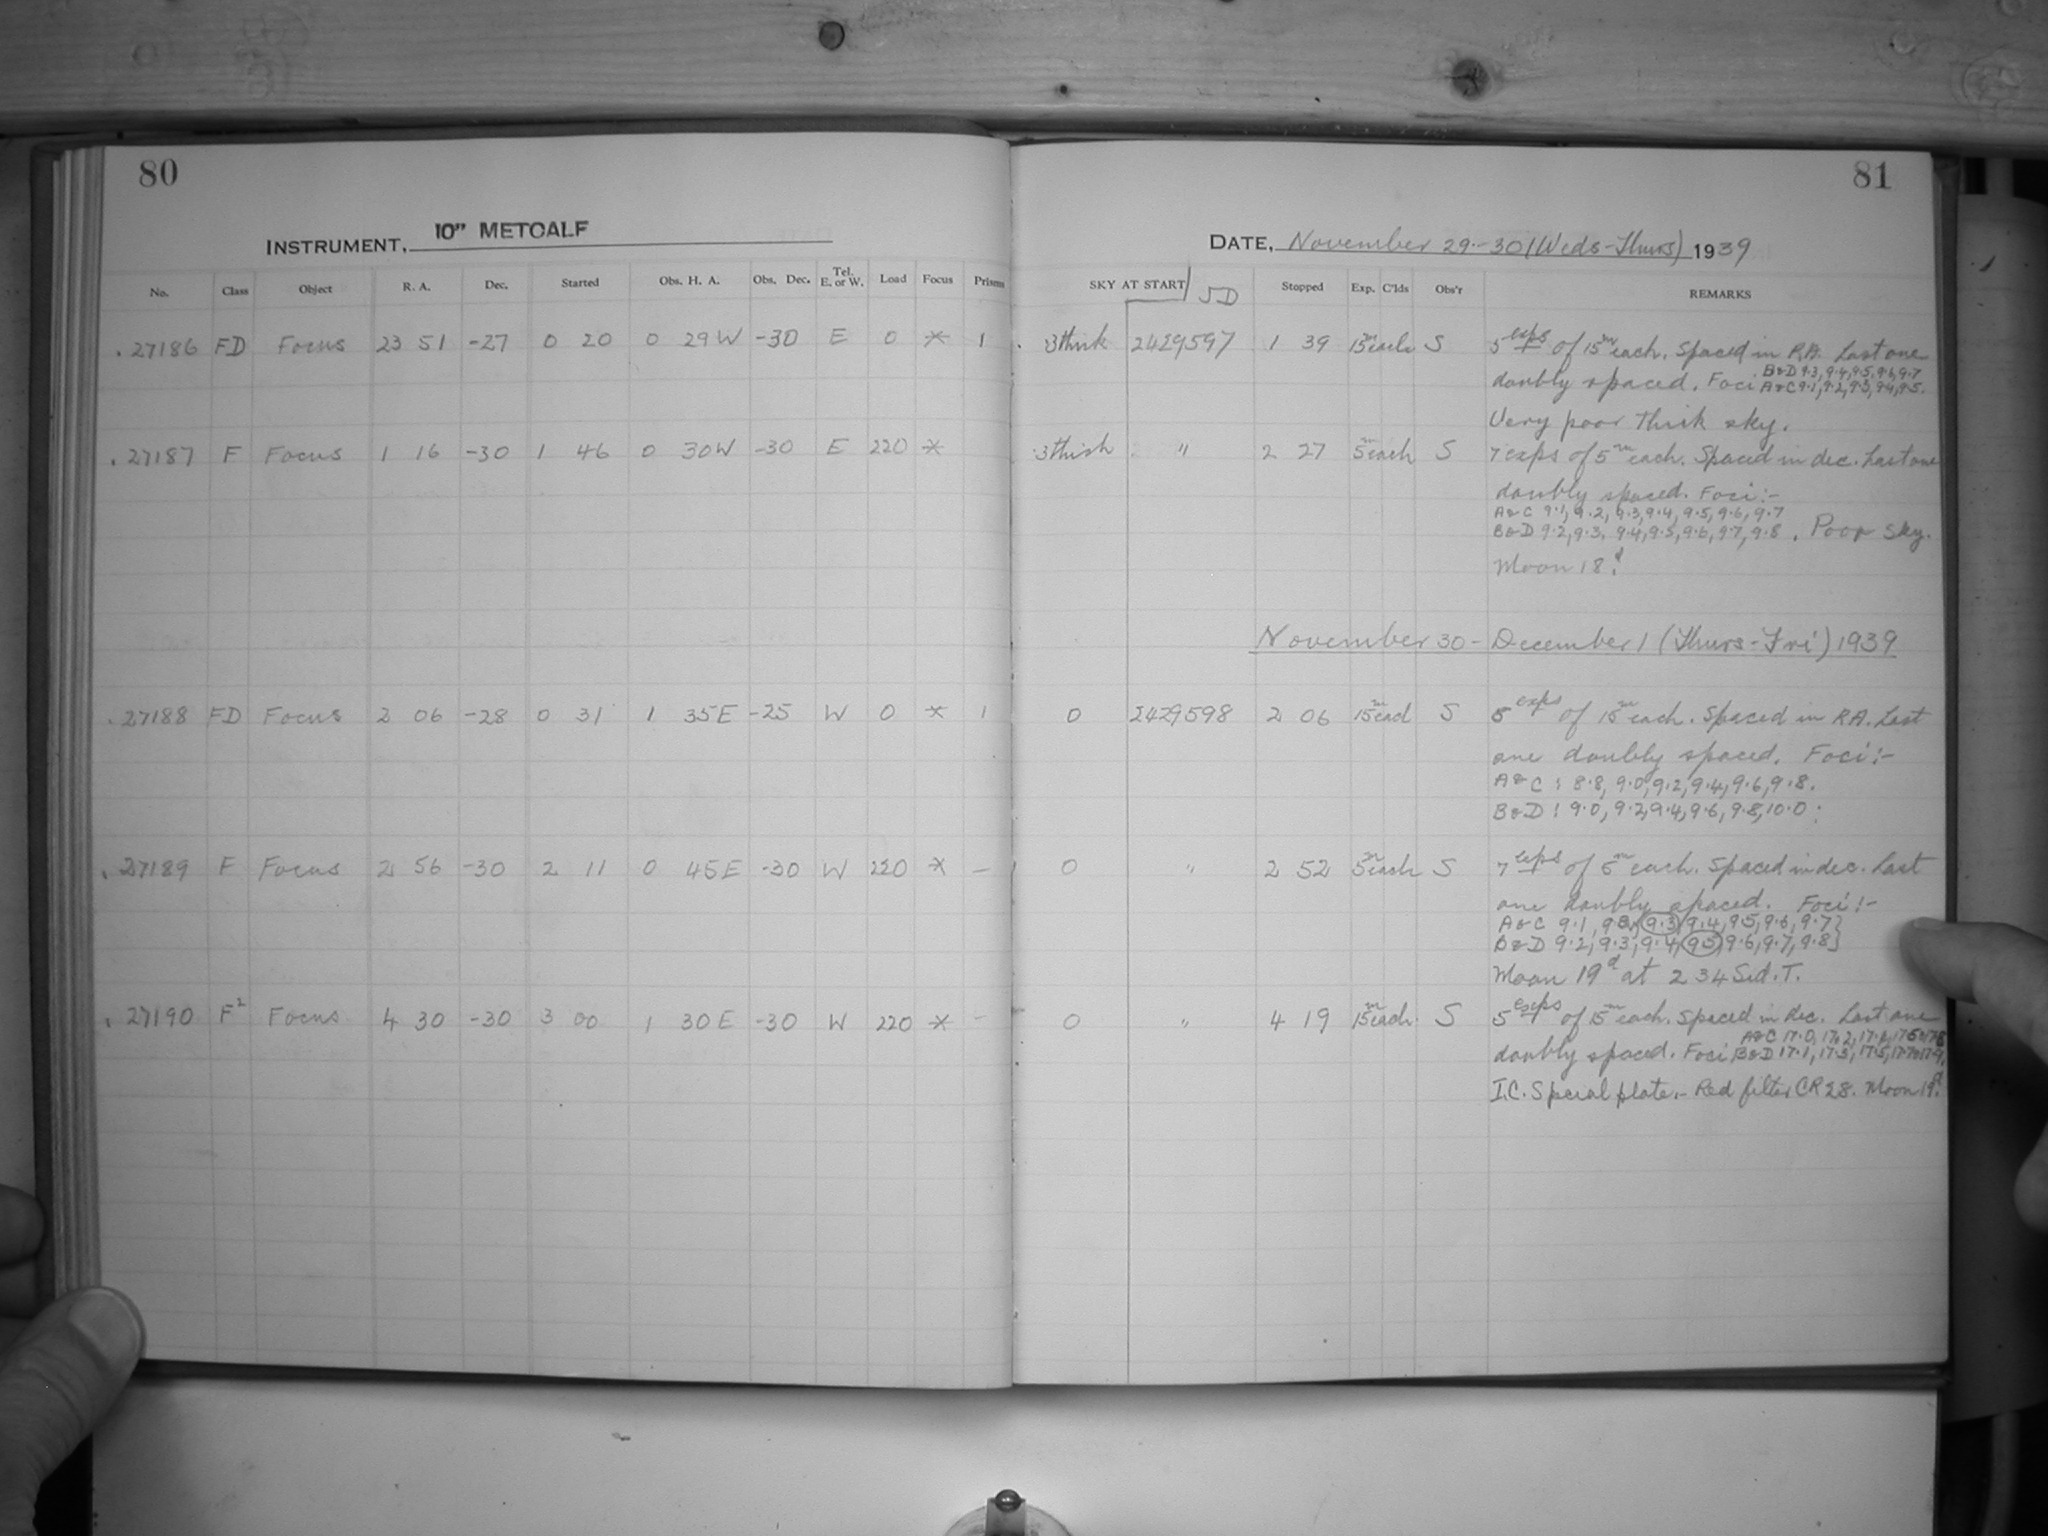 80
81
INSTRUMENT, 10" METCALF
DATE, November 29-30 (Weds-Thurs) 1939
No. Class Object R. A. Dec. Started Obs. H. A. Obs. Dec. Tel. E. or W. Load Focus Prisms SKY AT START / JD Stopped Exp. C'lds Obs'r REMARKS
27186 FD Focus 23 51 -27 0 20 0 29 W -30 E 0 * 1 3 thick 2429597 1 39 15m each S 5 exps of 15m each. Spaced in R.A. Last one
doubly spaced. Foci B&D 9.3, 9.4, 9.5, 9.6, 9.7
A&C 9.1, 9.2, 9.3, 9.4, 9.5.
Very poor thick sky.
27187 F Focus 1 16 -30 1 46 0 30 W -30 E 220 * 3 thick " 2 27 5m each S 7 exps of 5m each. Spaced in dec. Last one
doubly spaced. Foci:-
A&C 9.1, 9.2, 9.3, 9.4, 9.5, 9.6, 9.7
B&D 9.2, 9.3, 9.4, 9.5, 9.6, 9.7, 9.8. Poor sky.
Moon 18d.
November 30 - December 1 (Thurs-Fri) 1939
27188 FD Focus 2 06 -28 0 31 1 35 E -25 W 0 * 1 0 2429598 2 06 15m each S 5 exps of 15m each. Spaced in R.A. Last
one doubly spaced. Foci:-
A&C : 8.8, 9.0, 9.2, 9.4, 9.6, 9.8.
B&D : 9.0, 9.2, 9.4, 9.6, 9.8, 10.0.
27189 F Focus 2 56 -30 2 11 0 45 E -30 W 220 * - 0 " 2 52 5m each S 7 exps of 5m each. Spaced in dec. Last
one doubly spaced. Foci:-
A&C 9.1, 9.2, 9.3, 9.4, 9.5, 9.6, 9.7}
B&D 9.2, 9.3, 9.4, 9.5, 9.6, 9.7, 9.8}
Moon 19d at 2 34 Sid. T.
27190 F2 Focus 4 30 -30 3 00 1 30 E -30 W 220 * - 0 " 4 19 15m each S 5 exps of 15m each. Spaced in dec. Last one
doubly spaced. Foci A&C 17.0, 17.2, 17.4, 17.6 & 17.8
B&D 17.1, 17.3, 17.5, 17.7 & 17.9.
I.C. Special plate.- Red filter CR 28. Moon 19d.